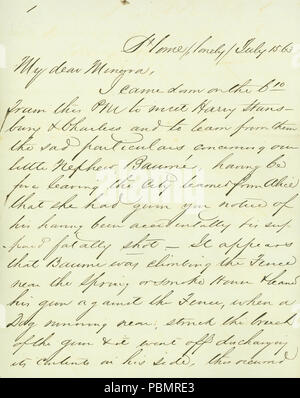 At Home (lonely) July 186
My dear Minora,
I came down on the 6 10
train this PM to meet Harry Stans
bury & Charless and to learn from them
the sad particulars concerning our
little Nephew Baume, having be
fore leaving the City learned from Alice
that she had given you notice of
his having been accidentally his sup
posed fatally shot — It appears
that Baume was climbing the Fence
near the Spring or smoke House & leand
his gun against the Fence, when a
Dog running near, struck the breech
of the gun & it went off discharging
its contents in his side, this occurred
alamy
Image ID: PBMRE3
www.alamy.com